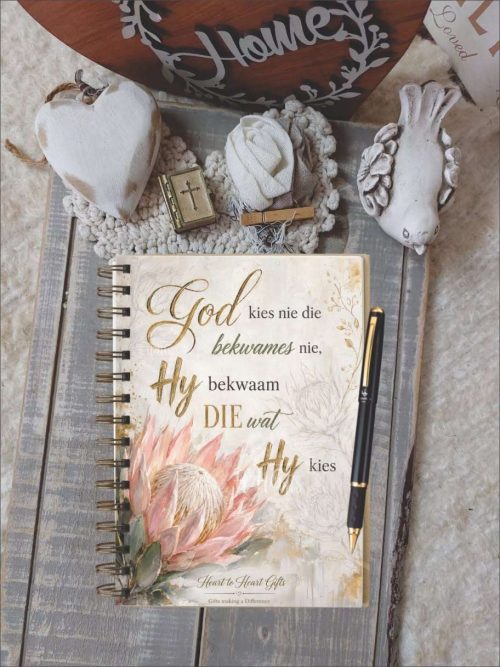 Home
Loved
God kies nie die
bekwames nie,
Hy bekwaam
DIE wat
Hy kies
Heart to Heart Gifts
Gifts making a Difference